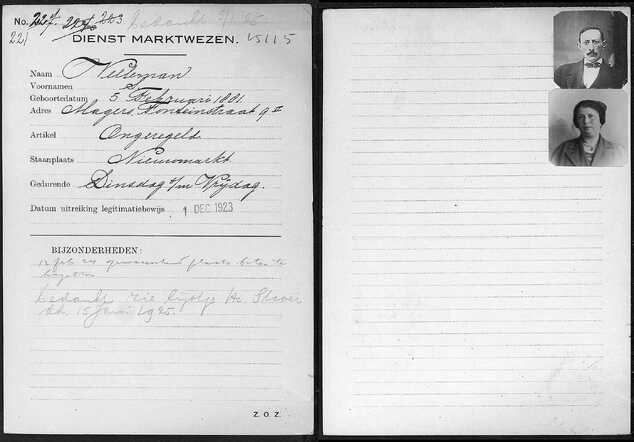 No. 227. 223 bedankt
221
DIENST MARKTWEZEN. 15115
Naam Neeteman
Voornamen S
Geboortedatum 5 Februari 1881
Adres Magers. Fonteinstraat 9 II
Artikel Ongeregeld
Staanplaats Nieuwmarkt
Gedurende Dinsdag t/m Vrijdag.
Datum uitreiking legitimatiebewijs. 1 DEC 1923
BIJZONDERHEDEN:
12 feb 24 gewaarschuwd plaats beter te
bedankt zie lijstje
15 Juni 1925.
Z. O. Z.